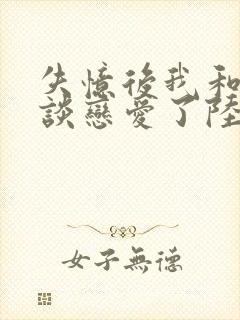 失憶後我和
談戀愛了陸
女子無德